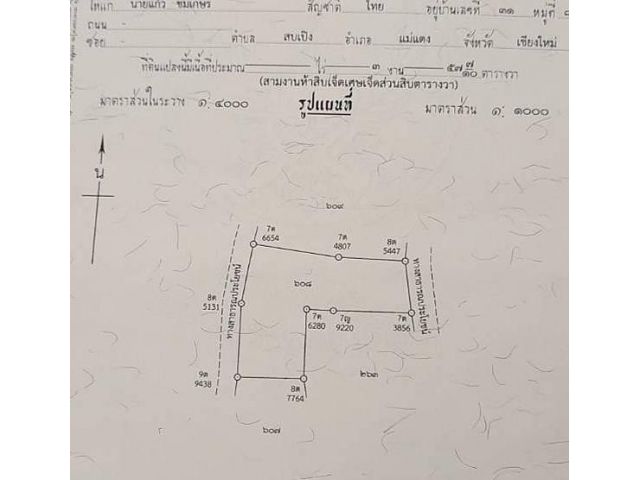 ให้แก่ นายแก้ว ชมภูเกษร สัญชาติ ไทย อยู่บ้านเลขที่ ๓๑ หมู่ที่
ถนน
ซอย ตำบล สบเปิง อำเภอ แม่แตง จังหวัด เชียงใหม่
ที่ดินแปลงนี้มีเนื้อที่ประมาณ ไร่ ๓ งาน ๕๗ ๗/๑๐ ตารางวา
(สามงานห้าสิบเจ็ดเศษเจ็ดส่วนสิบตารางวา)
มาตราส่วนในระวาง ๑:๔๐๐๐ รูปแผนที่ มาตราส่วน ๑: ๑๐๐๐
น
๖๐๙
7ต
6654
7ต
4807
8ต
5447
ทางสาธารณประโยชน์
๖๐๘
8ต
5131
ทางสาธารณประโยชน์
7ต
6280
7ญ
9220
7ต
3856
9ต
9438
8ต
7764
๒๖๓
๖๐๗